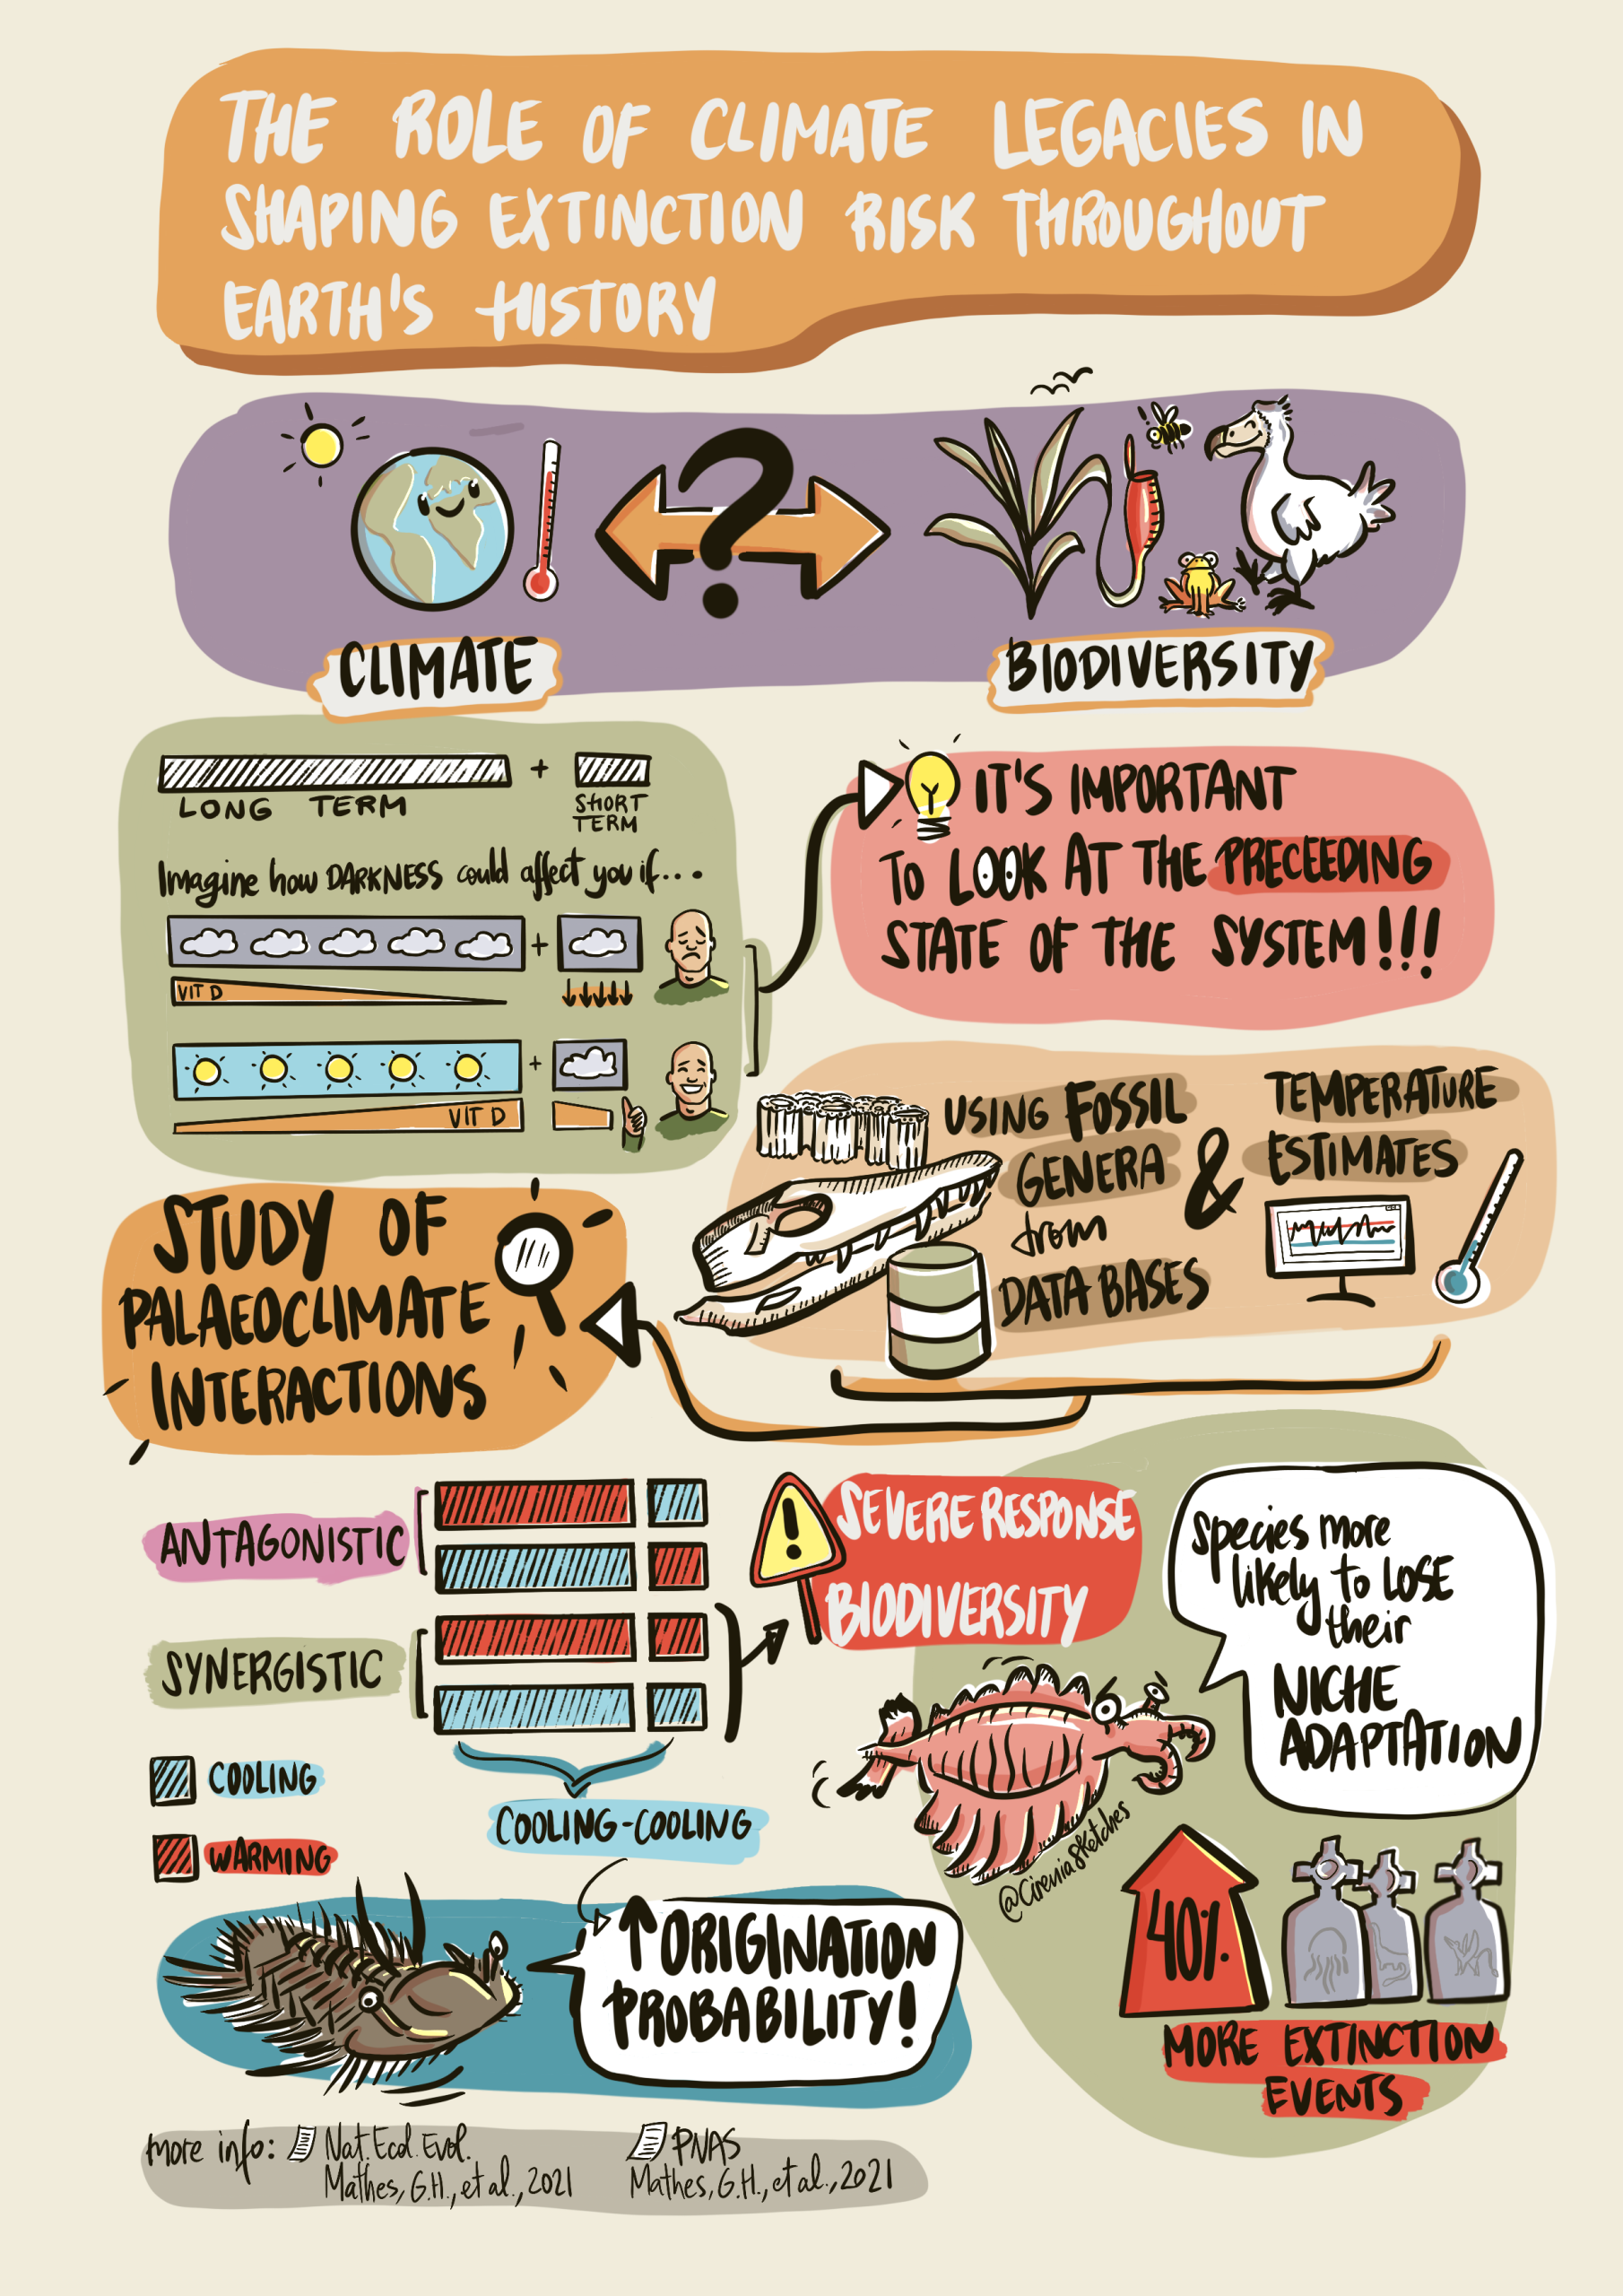 THE ROLE OF CLIMATE LEGACIES IN
SHAPING EXTINCTION RISK THROUGHOUT
EARTH'S HISTORY
?
CLIMATE
BIODIVERSITY
LONG TERM
+
SHORT
TERM
Imagine how DARKNESS could affect you if...
+
VIT D
+
VIT D
IT'S IMPORTANT
TO LOOK AT THE PRECEEDING
STATE OF THE SYSTEM!!!
USING FOSSIL
GENERA
from
DATA BASES
&
TEMPERATURE
ESTIMATES
STUDY OF
PALAEOCLIMATE
INTERACTIONS
ANTAGONISTIC
SYNERGISTIC
COOLING
WARMING
COOLING-COOLING
!
SEVERE RESPONSE
BIODIVERSITY
Species more
likely to LOSE
their
NICHE
ADAPTATION
@CireniaSketches
40%
MORE EXTINCTION
EVENTS
↑ ORIGINATION
PROBABILITY!
more info: Nat. Ecol. Evol.
Mathes, G.H., et al., 2021
PNAS
Mathes, G.H., et al., 2021